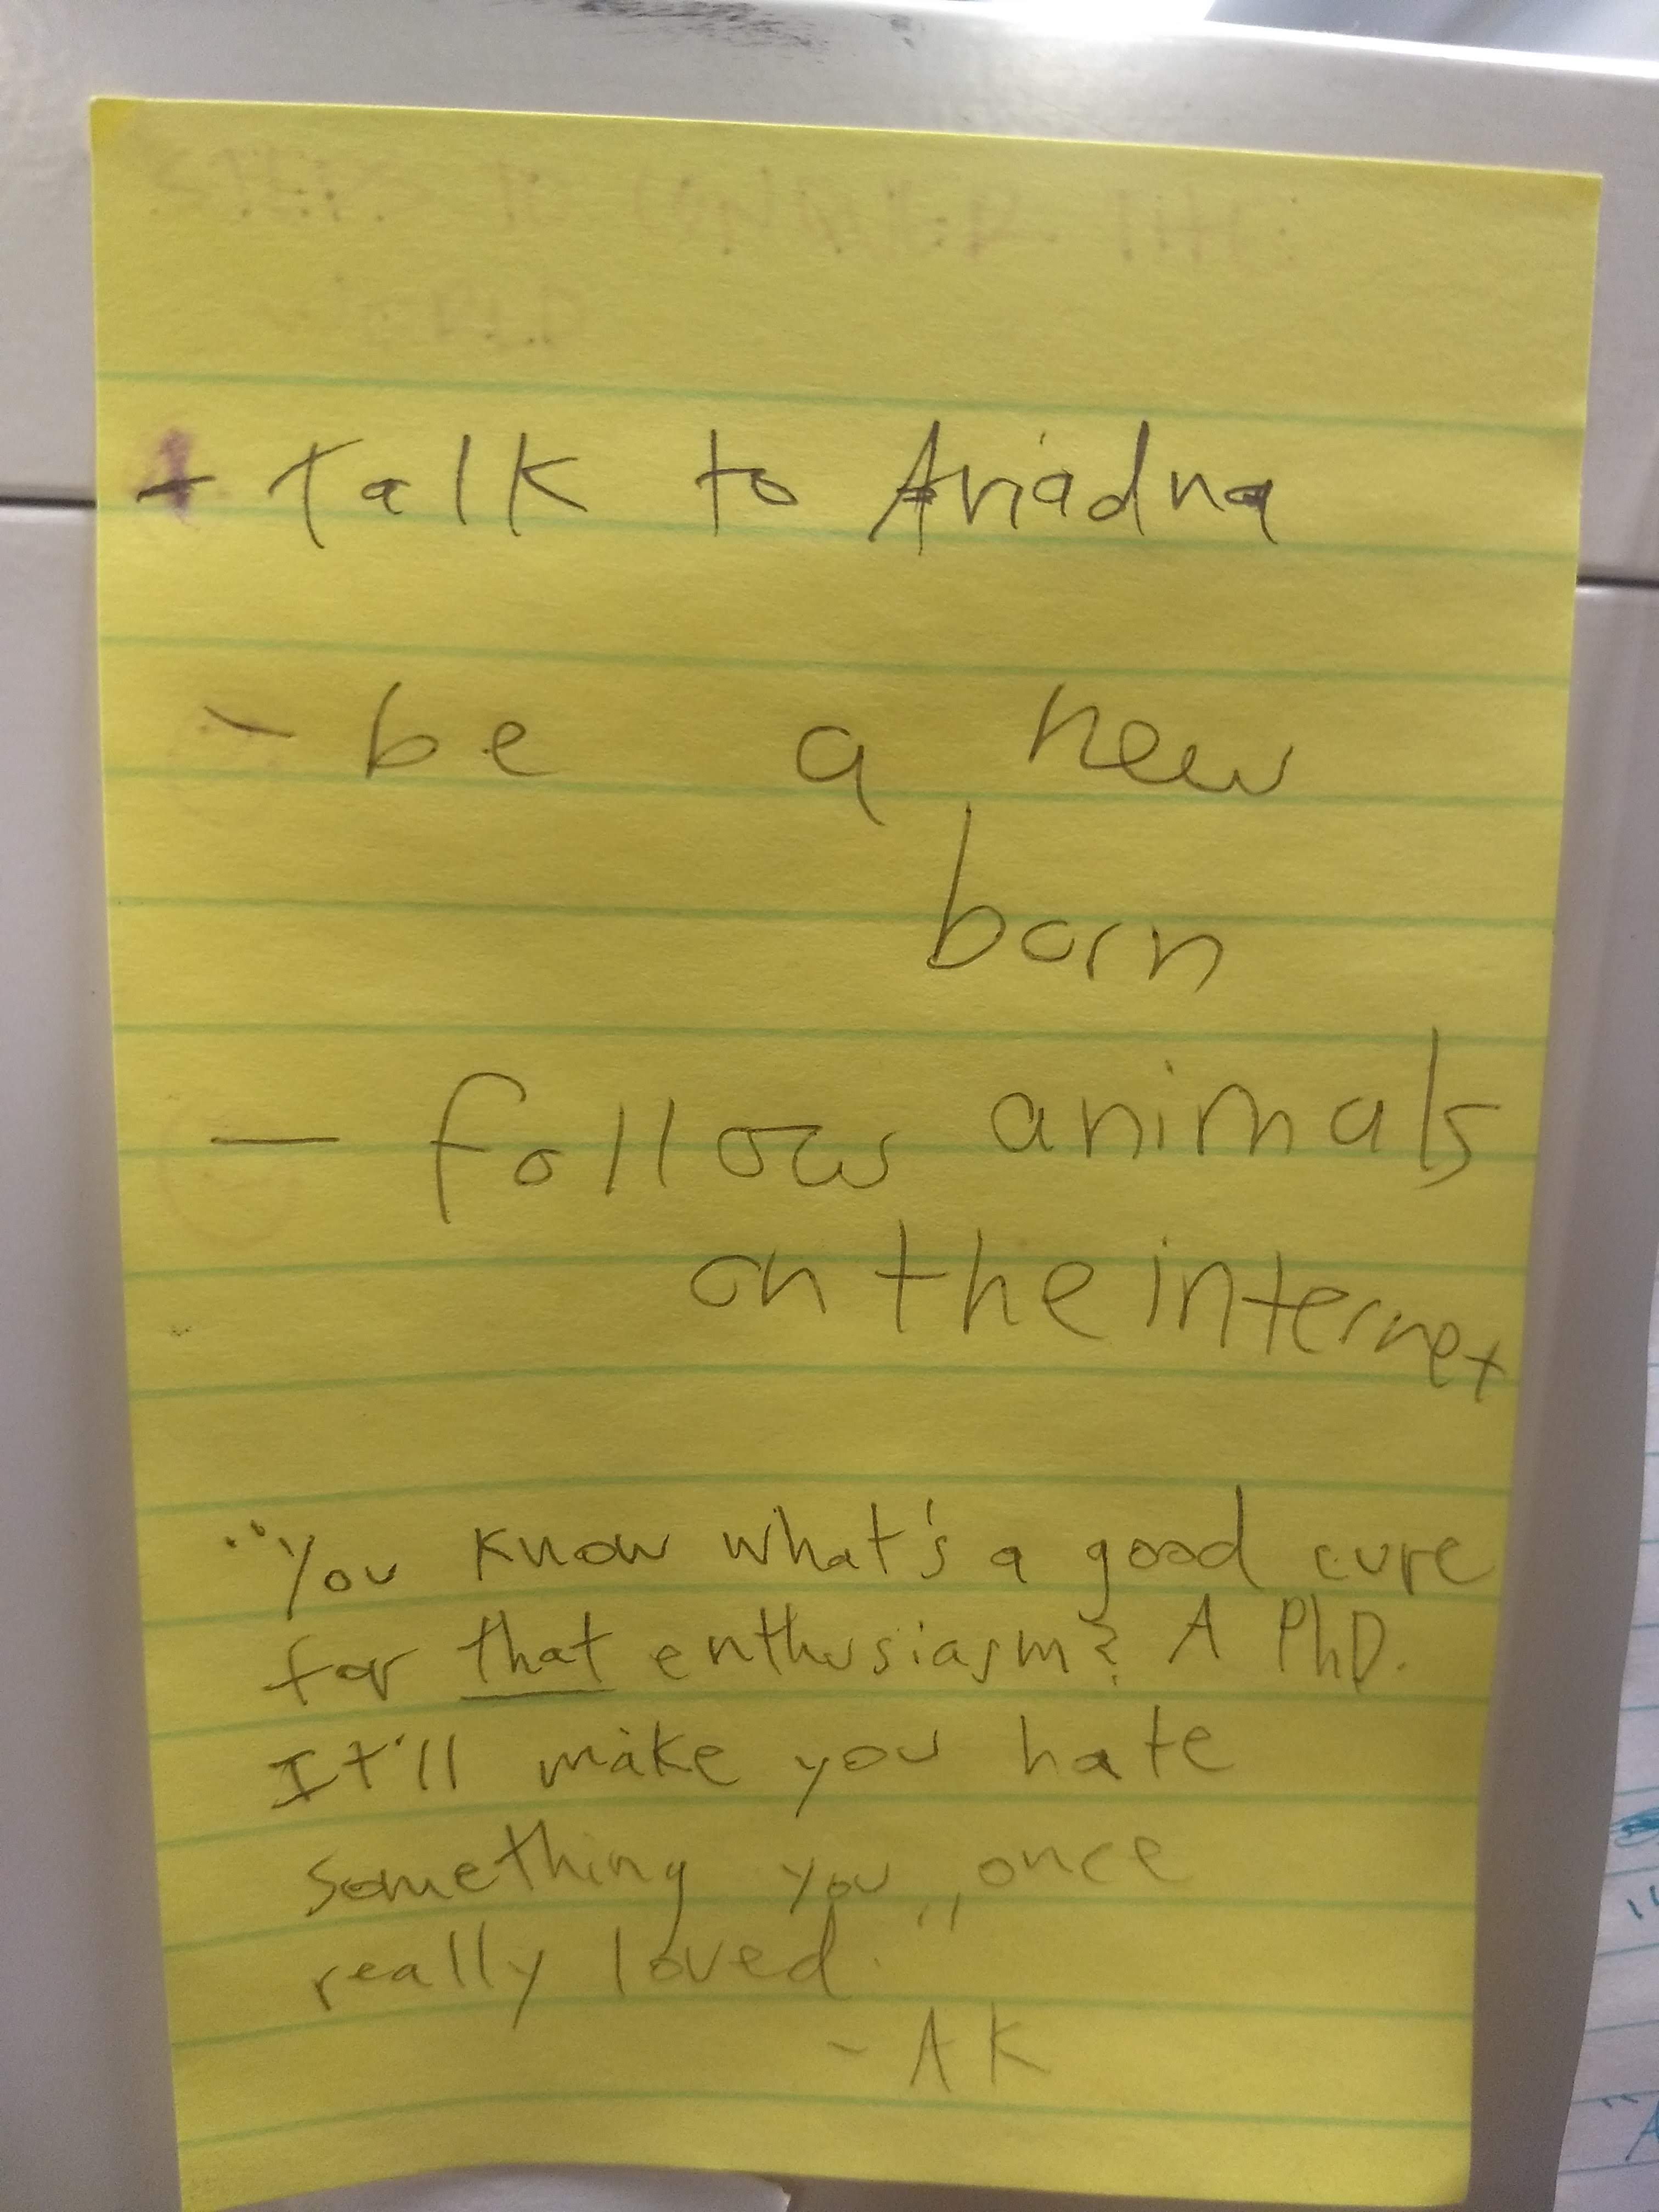 - Talk to Ariadna
- be a new
born
- follow animals
on the internet
"You know what's a good cure
for that enthusiasm? A PhD.
It'll make you hate
something you once
really loved."
- AK